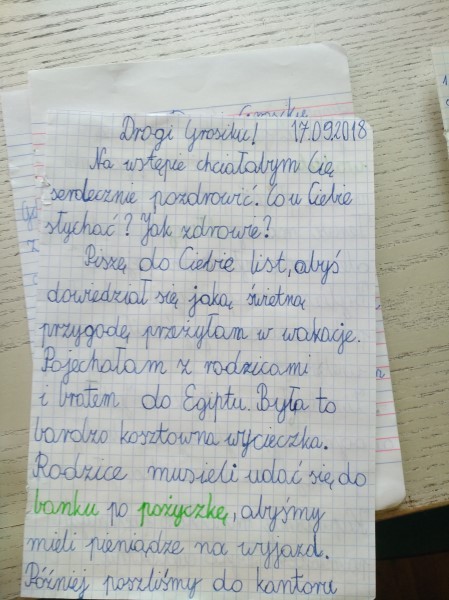 Drogi Grosiku! 17.092018
Na wstępie chciałabym Cię
serdecznie pozdrowić. Co u Ciebie
słychać? Jak zdrowie?
Piszę do Ciebie list, abyś
dowiedział się jaką świetną
przygodę przeżyłam w wakacje.
Pojechałam z rodzicami
i bratem do Egiptu. Była to
bardzo kosztowna wycieczka.
Rodzice musieli udać się do
banku po pożyczkę, abyśmy
mieli pieniądze na wyjazd.
Później poszliśmy do kantoru